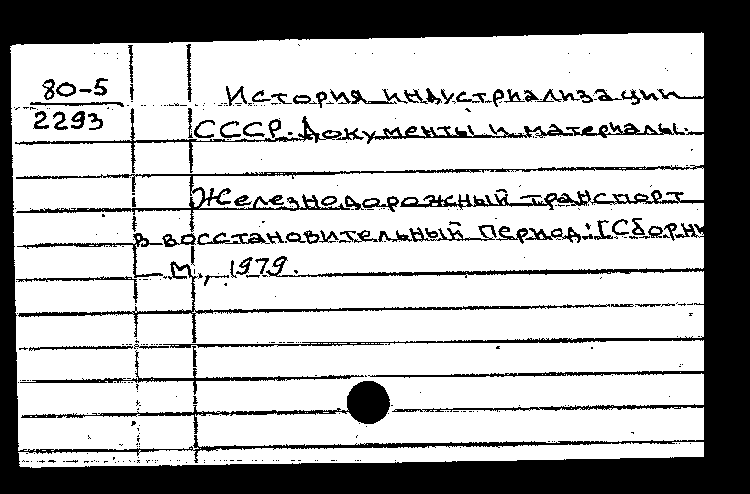 80-5
2293
История индустриализации
СССР. Документы и материалы.
Железнодорожный транспорт
в восстановительный период: [Сборни
— М., 1979.